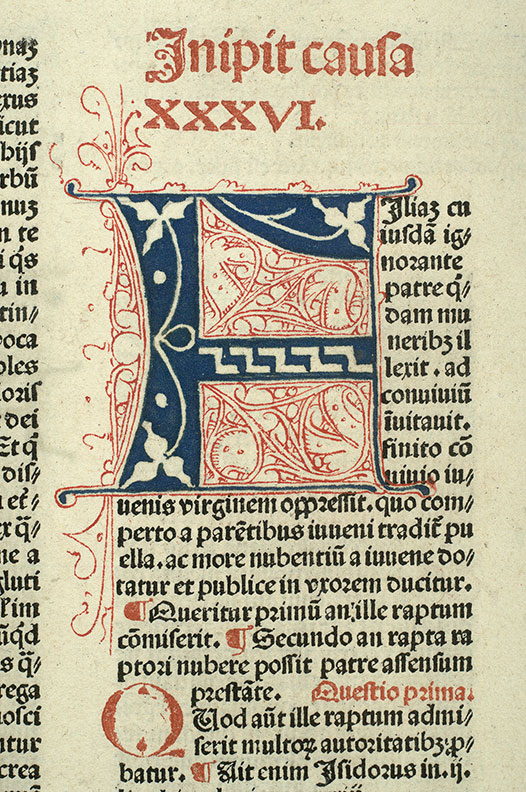 Inipit causa
XXXVI.
FIliaꝫ cu
iusdā ig⸗
norante
patre q̄⸗
dam mu
neribꝫ il
lexit . ad
conuiuiū
īuitauit.
finito cō
uiuio iu⸗
uenis virginem oppressit. quo com⸗
perto a parētibus iuueni tradit̄ pu
ella. ac more nubentiū a iuuene do⸗
tatur et publice in vxorem ducitur.
¶ Queritur primū an ille raptum
cōmiserit. ¶ Secundo an rapta ra
ptori nubere possit patre assensum
prestāte. Questio prima.
QUod aūt ille raptum admi⸗
serit multoꝝ autoritatibꝫ ꝓ⸗
batur. ¶ Ait enim Isidorus in .ij.